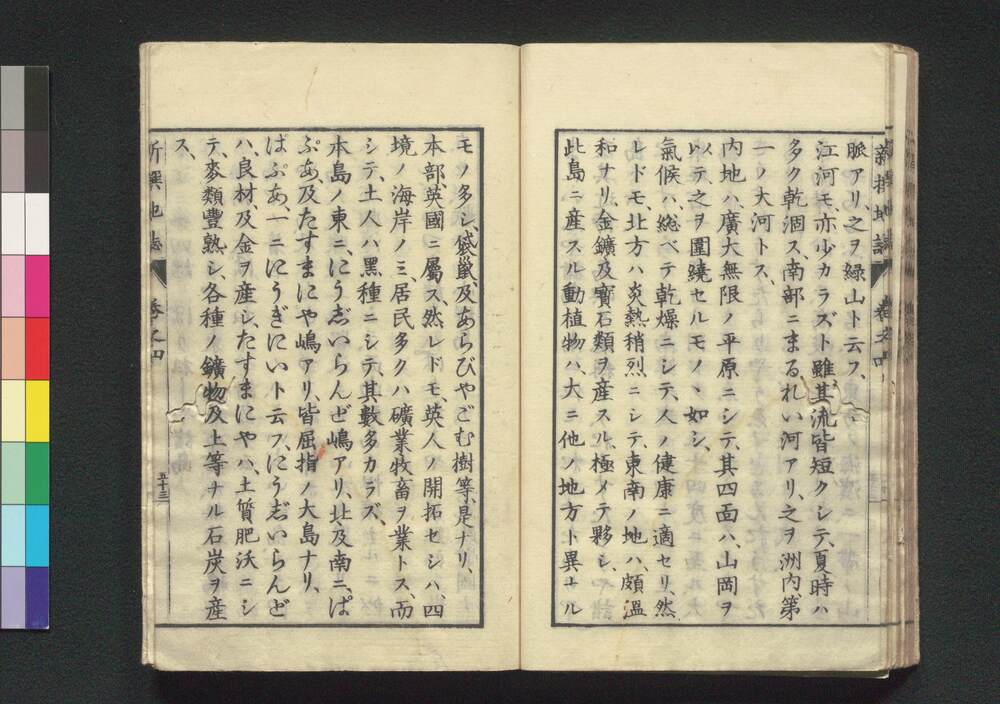 脈アリ、之ヲ緑山ト云フ、
江河モ、亦少カラズト雖、其流皆短クシテ、夏時ハ
多ク乾涸ス、南部ニまるれい河アリ、之ヲ洲内、第
一ノ大河トス、
内地ハ、廣大無限ノ平原ニシテ、其四面ハ、山岡ヲ
以テ、之ヲ圍繞セルモノヽ如シ、
氣候ハ、總ベテ乾燥ニシテ、人ノ健康ニ適セリ、然
レドモ、北方ハ炎熱稍烈ニシテ、東南ノ地ハ、頗溫
和ナリ、金鑛及寶石類ヲ産スル、極メテ夥シ、
此島ニ産スル動植物ハ、大ニ他ノ地方ト異ナル
モノ多シ、袋鼠、及あらびやごむ樹等、是ナリ、
本部、英國ニ屬ス、然レドモ、英人ノ開拓セシハ、四
境ノ海岸ノミ、居民多クハ礦業牧畜ヲ業トス、而
シテ、土人ハ黑種ニシテ其數多カラズ、
本島ノ東ニ、にうぢいらんど嶋アリ、北及南ニ、ぱ
ぷあ、及たすまにや嶋アリ、皆屈指ノ大島ナリ、
ぱぷあ、一ニにうぎにいト云フ、にうぢいらんど
ハ、良材、及金ヲ産シ、たすまにやハ、土質肥沃ニシ
テ、麥類豐熟シ、各種ノ鑛物及上等ナル石炭ヲ産
ス、
新撰地誌
卷之四
五十三